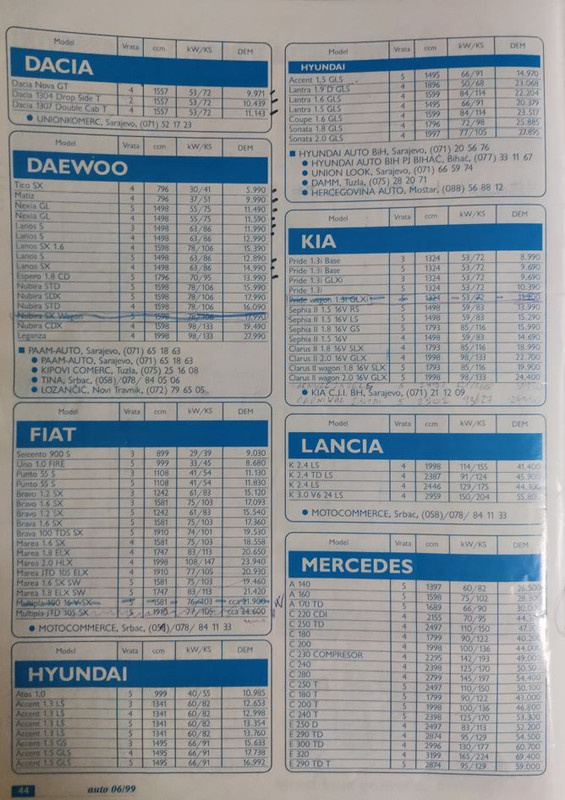 Model Vrata ccm kW/KS DEM
DACIA
Dacia Nova GT 4 1557 53/72 9.971
Dacia 1304 Drop Side T 2 1557 53/72 10.439
Dacia 1307 Double Cab T 4 1557 53/72 11.143
● UNIONKOMERC, Sarajevo, (071) 52 17 23
Model Vrata ccm kW/KS DEM
DAEWOO
Tico SX 4 796 30/41 5.990
Matiz 4 796 37/51 9.990
Nexia GL 4 1498 55/75 11.490
Nexia GL 4 1498 55/75 11.590
Lanos S 3 1498 63/86 11.990
Lanos S 4 1498 63/86 12.990
Lanos SX 1.6 4 1598 78/106 15.390
Lanos S 5 1498 63/86 12.890
Lanos SX 4 1498 63/86 14.990
Espero 1.8 CD 5 1796 70/95 13.990
Nubira STD 4 1598 78/106 15.990
Nubira SDX 5 1598 78/106 17.990
Nubira STD 4 1598 78/106 16.090
Nubira SX Wagon 5 1598 78/106 17.990
Nubira CDX 4 1998 98/133 19.490
Leganza 4 1998 98/133 27.990
■ PAAM-AUTO, Sarajevo, (071) 65 18 63
● PAAM-AUTO, Sarajevo, (071) 65 18 63
● KIPOVI COMERC, Tuzla, (075) 25 16 08
● TINA, Srbac, (058)/078/ 84 05 06
● LOZANČIĆ, Novi Travnik, (072) 79 65 05
Model Vrata ccm kW/KS DEM
FIAT
Seicento 900 S 3 899 29/39 9.030
Uno 1.0 FIRE 5 999 33/45 8.680
Punto 55 S 3 1108 41/54 11.130
Punto 55 S 5 1108 41/54 11.830
Bravo 1.2 SX 3 1242 61/83 15.120
Bravo 1.6 SX 3 1581 75/103 17.093
Brava 1.2 SX 5 1242 61/83 15.540
Brava 1.6 SX 5 1581 75/103 17.360
Brava 100 TDS SX 5 1910 74/101 19.530
Marea 1.6 SX 4 1581 75/103 18.558
Marea 1.8 ELX 4 1747 83/113 20.650
Marea 2.0 HLX 4 1998 108/147 23.940
Marea JTD 105 ELX 4 1910 77/105 20.930
Marea 1.6 SX SW 5 1581 75/103 19.460
Marea 1.8 ELX SW 5 1747 83/113 21.420
Multipla 100 16 V SX 5 1581 76/103 cca 21.900
Multipla JTD 105 SX 5 1910 77/105 cca 24.600
● MOTOCOMMERCE, Srbac, (058)/078/ 84 11 33
Model Vrata ccm kW/KS DEM
HYUNDAI
Atos 1.0 5 999 40/55 10.985
Accent 1.3 LS 3 1341 60/82 12.653
Accent 1.3 LS 4 1341 60/82 12.998
Accent 1.3 LS 5 1341 60/82 13.354
Accent 1.3 LS 5 1341 60/82 13.760
Accent 1.5 GS 3 1495 66/91 15.633
Accent 1.5 GLS 4 1495 66/91 17.738
Accent 1.5 GLS 5 1495 66/91 16.992
44 auto 06/99
Model Vrata ccm kW/KS DEM
HYUNDAI
Accent 1.5 GLS 5 1495 66/91 14.970
Lantra 1.9 D GLS 4 1896 50/68 23.068
Lantra 1.6 GLS 4 1599 84/114 22.204
Lantra 1.5 GLS 4 1495 66/91 20.379
Coupe 1.6 GLS 4 1599 84/114 23.517
Sonata 1.8 GLS 4 1796 72/98 25.885
Sonata 2.0 GLS 4 1997 77/105 27.895
■ HYUNDAI AUTO BiH, Sarajevo, (071) 20 56 76
● HYUNDAI AUTO BIH PJ BIHAĆ, Bihać, (077) 33 11 67
● UNION LOOK, Sarajevo, (071) 66 59 74
● DAMM, Tuzla, (075) 28 20 71
● HERCEGOVINA AUTO, Mostar, (088) 56 88 12
Model Vrata ccm kW/KS DEM
KIA
Pride 1.3i Base 3 1324 53/72 8.990
Pride 1.3i Base 5 1324 53/72 9.690
Pride 1.3i GLXI 3 1324 53/72 9.690
Pride 1.3i 5 1324 53/72 10.390
Pride wagon 1.3i GLXi 5 1324 53/72
Sephia II 1.5 16V RS 4 1498 59/83 13.990
Sephia II 1.5 16V LS 4 1498 59/83 15.290
Sephia II 1.8 16V GS 5 1793 85/116 15.990
Sephia II 1.5 16V 4 1498 59/83 14.690
Clarus II 1.8 16V SLX 4 1793 85/116 18.990
Clarus II 2.0 16V GLX 4 1998 98/133 22.700
Clarus II wagon 1.8 16V SLX 5 1793 85/116 19.900
Clarus II wagon 2.0 16V GLX 5 1998 98/133 24.400
● KIA C.J.I. BH, Sarajevo, (071) 21 12 09
CARNIVAL
Model Vrata ccm kW/KS DEM
LANCIA
K 2.4 LS 4 1998 114/155 41.400
K 2.4 TD LS 4 2387 91/124 45.900
K 2.4 LS 4 2446 129/175
K 3.0 V6 24 LS 4 2959 150/204
● MOTOCOMMERCE, Srbac, (058)/078/ 84 11 33
Model Vrata ccm kW/KS DEM
MERCEDES
A 140 5 1397 60/82
A 160 5 1598 75/102
A 170 TD 5 1689 66/90
C 220 CDI 4 2155 70/95
C 250 TD 4 2497 110/150
C 180 4 1799 90/122
C 200 4 1998 100/136 44.000
C 230 COMPRESOR 4 2295 142/193 49.000
C 240 4 2398 125/170 50.500
C 280 4 2799 145/197 54.400
C 250 T 5 2497 110/150 50.100
C 180 T 5 1799 90/122 43.000
C 200 T 5 1998 100/136 46.800
C 240 T 5 2398 125/170 53.300
E 250 D 4 2497 83/113 52.200
E 290 TD 4 2874 95/129 54.500
E 300 TD 4 2996 130/177 60.700
E 320 4 3199 165/224 69.400
E 290 TD T 5 2874 95/129 59.000